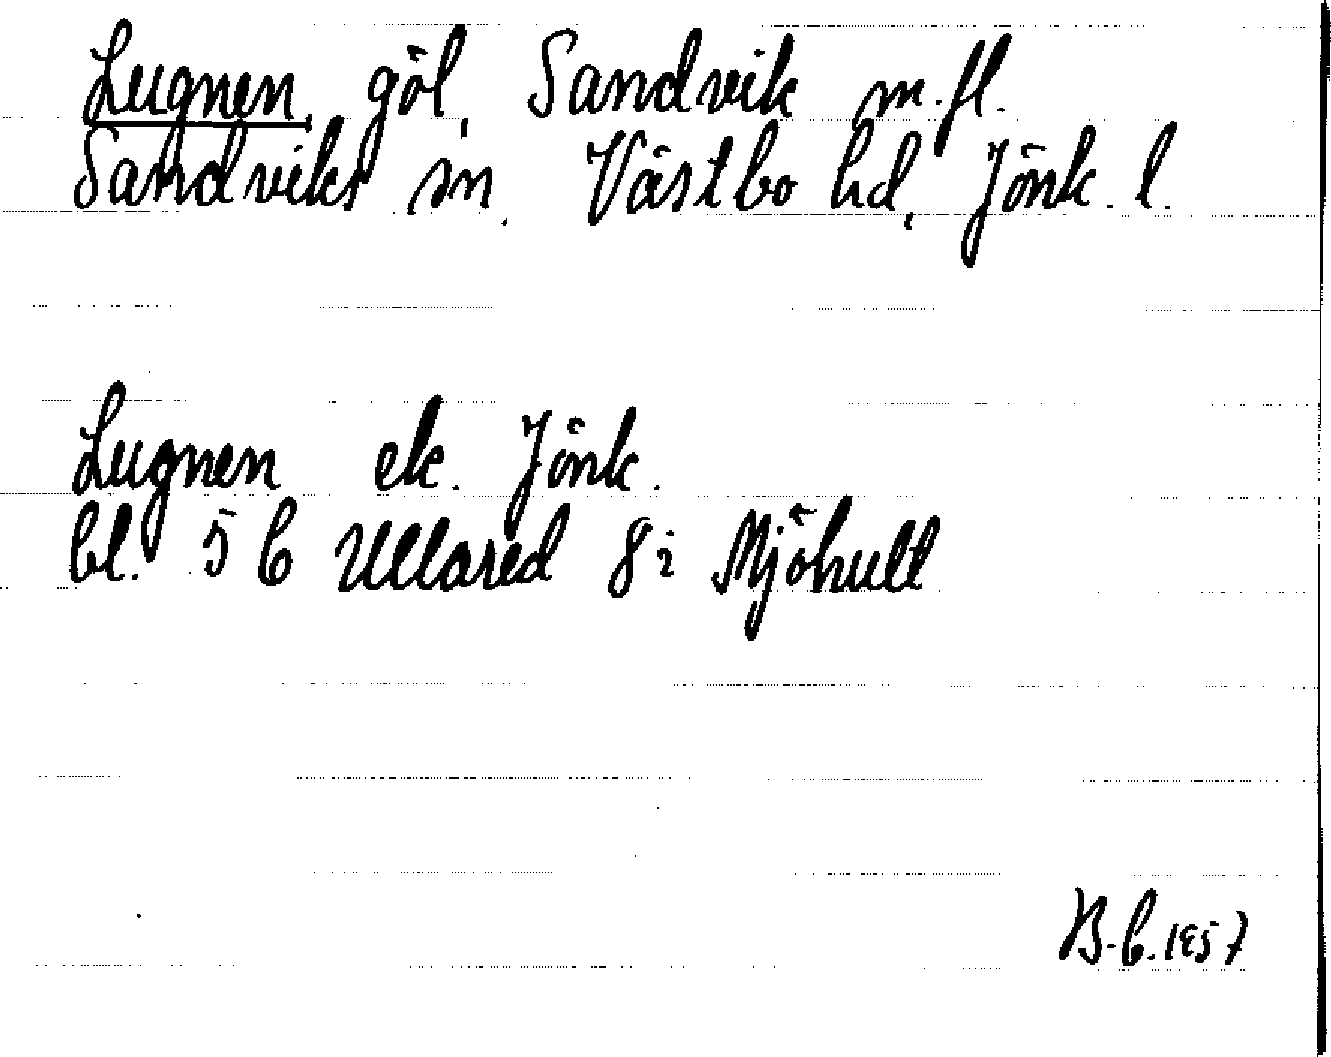 Lugnen, göl, Sandvik m.fl.
Sandviks sn. Västbo hd, Jönk. l.
Lugnen ek. Jönk.
bl. 5 C Ullared 8i Mjöhult
1957